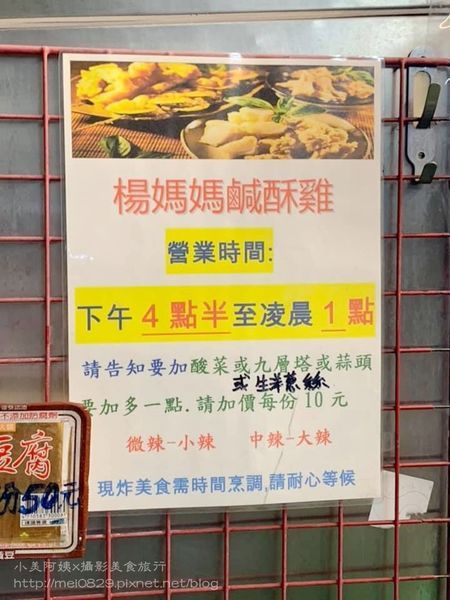 楊媽媽鹹酥雞
營業時間:
下午 4 點半至凌晨 1 點
請告知要加酸菜或九層塔或蒜頭
或生洋蔥絲
要加多一點.請加價每份 10 元
微辣-小辣 中辣-大辣
現炸美食需時間烹調,請耐心等候
不添加防腐劑
豆腐
份50元
小美阿姨×攝影美食旅行
http://mei0829.pixnet.net/blog